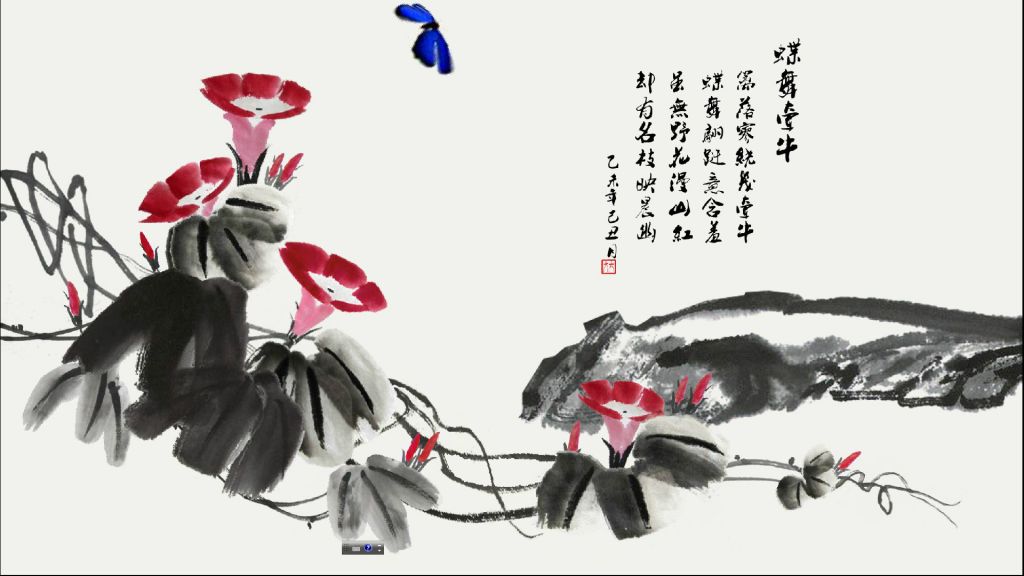 蝶舞牵牛
落寒绕牵牛
蝶舞翩跹意含羞
虽無野花漫山紅
却有名枝映晨幽
乙未年己丑月